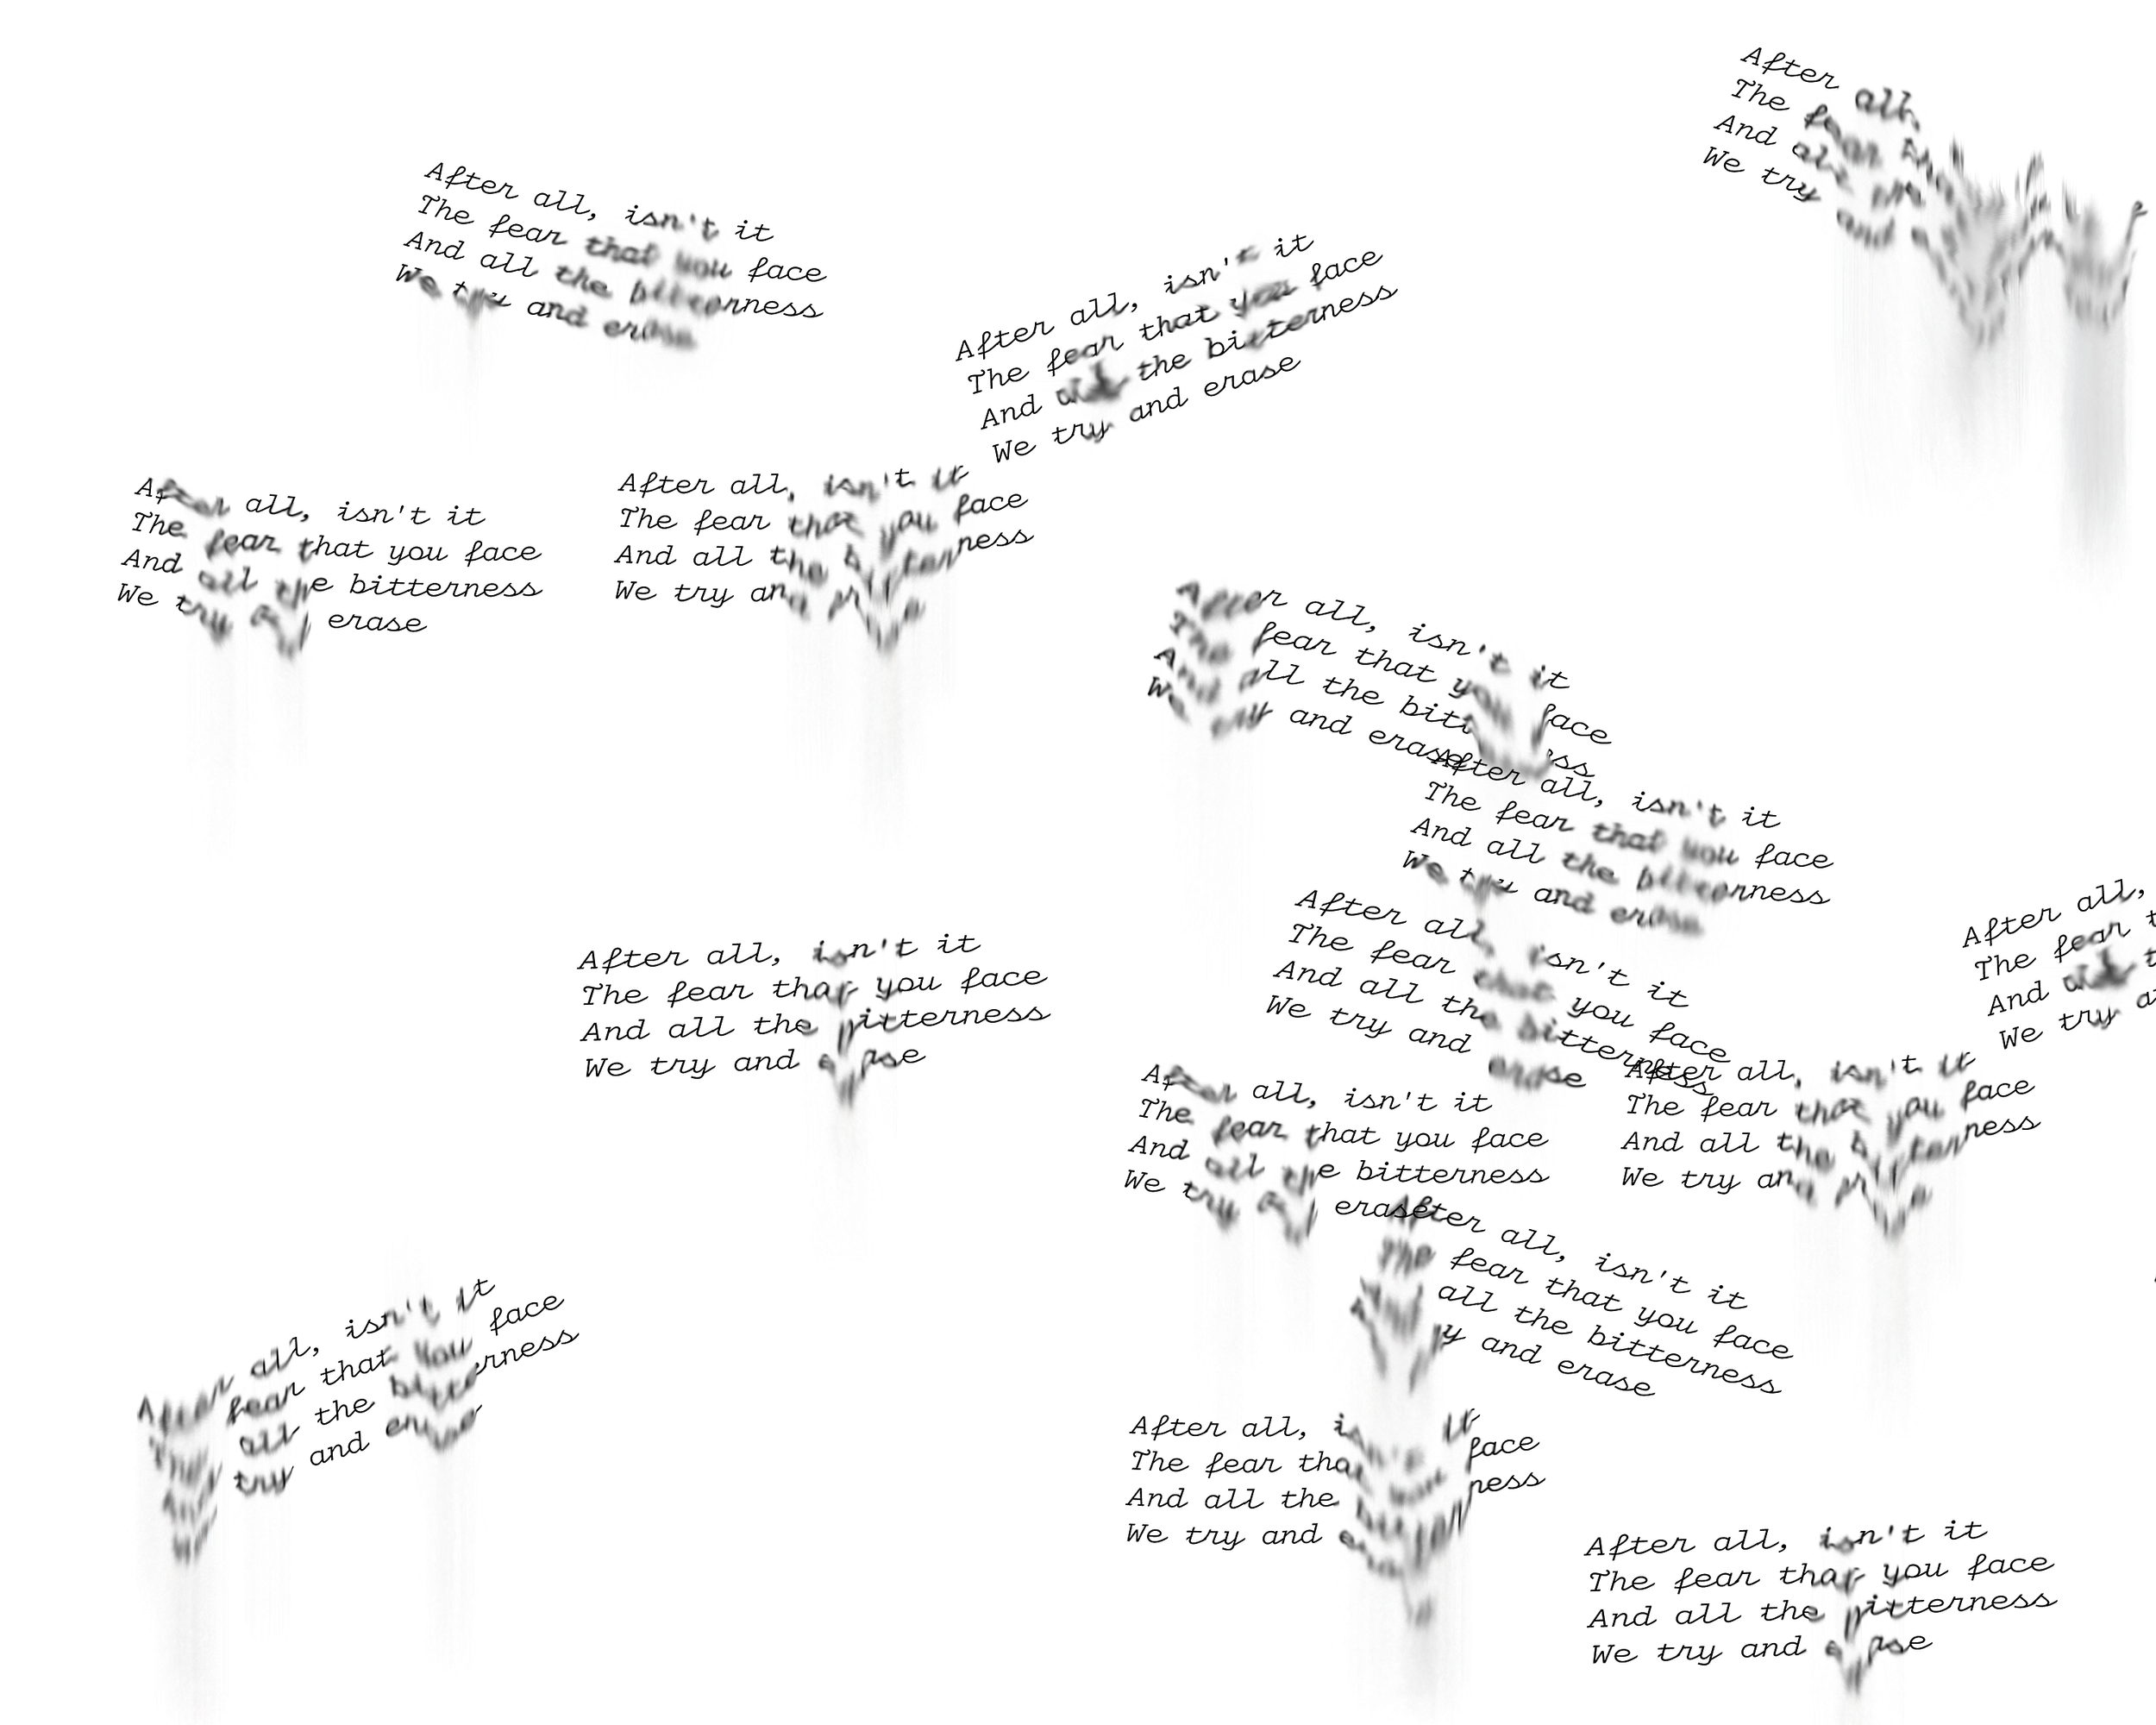 After all,
The fear
And
We try and
After all, isn't it
The fear that you face
And all the bitterness
We try and erase
After all, isn't it
The fear that you face
And the bitterness
We try and erase
After all, isn't it
The fear that you face
And all the bitterness
We try erase
After all, isn't it
The fear that you face
And all the bitterness
We try and
After all, isn't it
The fear that you face
And all the
We try and erase
After all, isn't it
The fear that you face
And all the bitterness
We try and erase
After all,
The fear
And
We try
After all, isn't it
The fear that you face
And all the bitterness
We try and erase
After all, isn't it
The fear that you face
And all the bitterness
We try and
After all, isn't it
The fear that you face
And all the bitterness
We try and erase
After all, isn't it
The fear that you face
And all the bitterness
We try erase
After all, isn't it
The fear that you face
all the bitterness
and erase
After all, isn't it
fear that you face
all the bitterness
try and erase
After all, isn't it
The fear that you face
And all the bitterness
We try and
After all, isn't it
The fear that you face
And all the bitterness
We try and